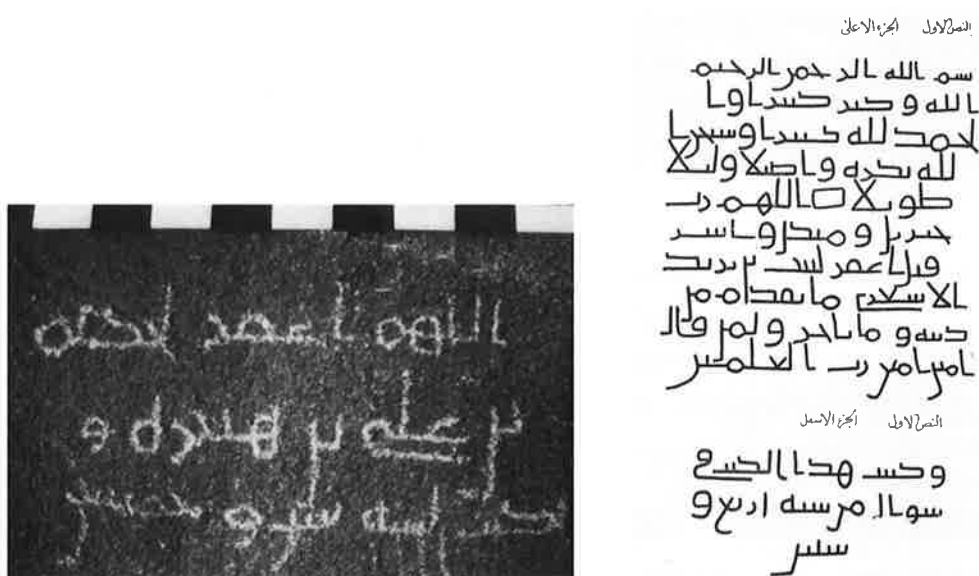 النص الاول الجزء الاعلى
بسم الله الرحمن الرحيم
الله وكبر كبيرا وا
لحمد لله كثيرا وسبحن ا
لله بكره واصيلا وليلا
طويلا اللهم رب
جبريل وميكل واسر
فيل اغفر لثبت بن يزيد
الاشعري ما تقدم من
ذنبه وما تاخر ولمن قال
امين امين رب العلمين
النص الاول الجزء الاسفل
وكتبت هذا الكتب في
شوال من سنه اربع و
ستين
اللهم اغفر
بن هبيره و
كتب لسنه ست وخمسين